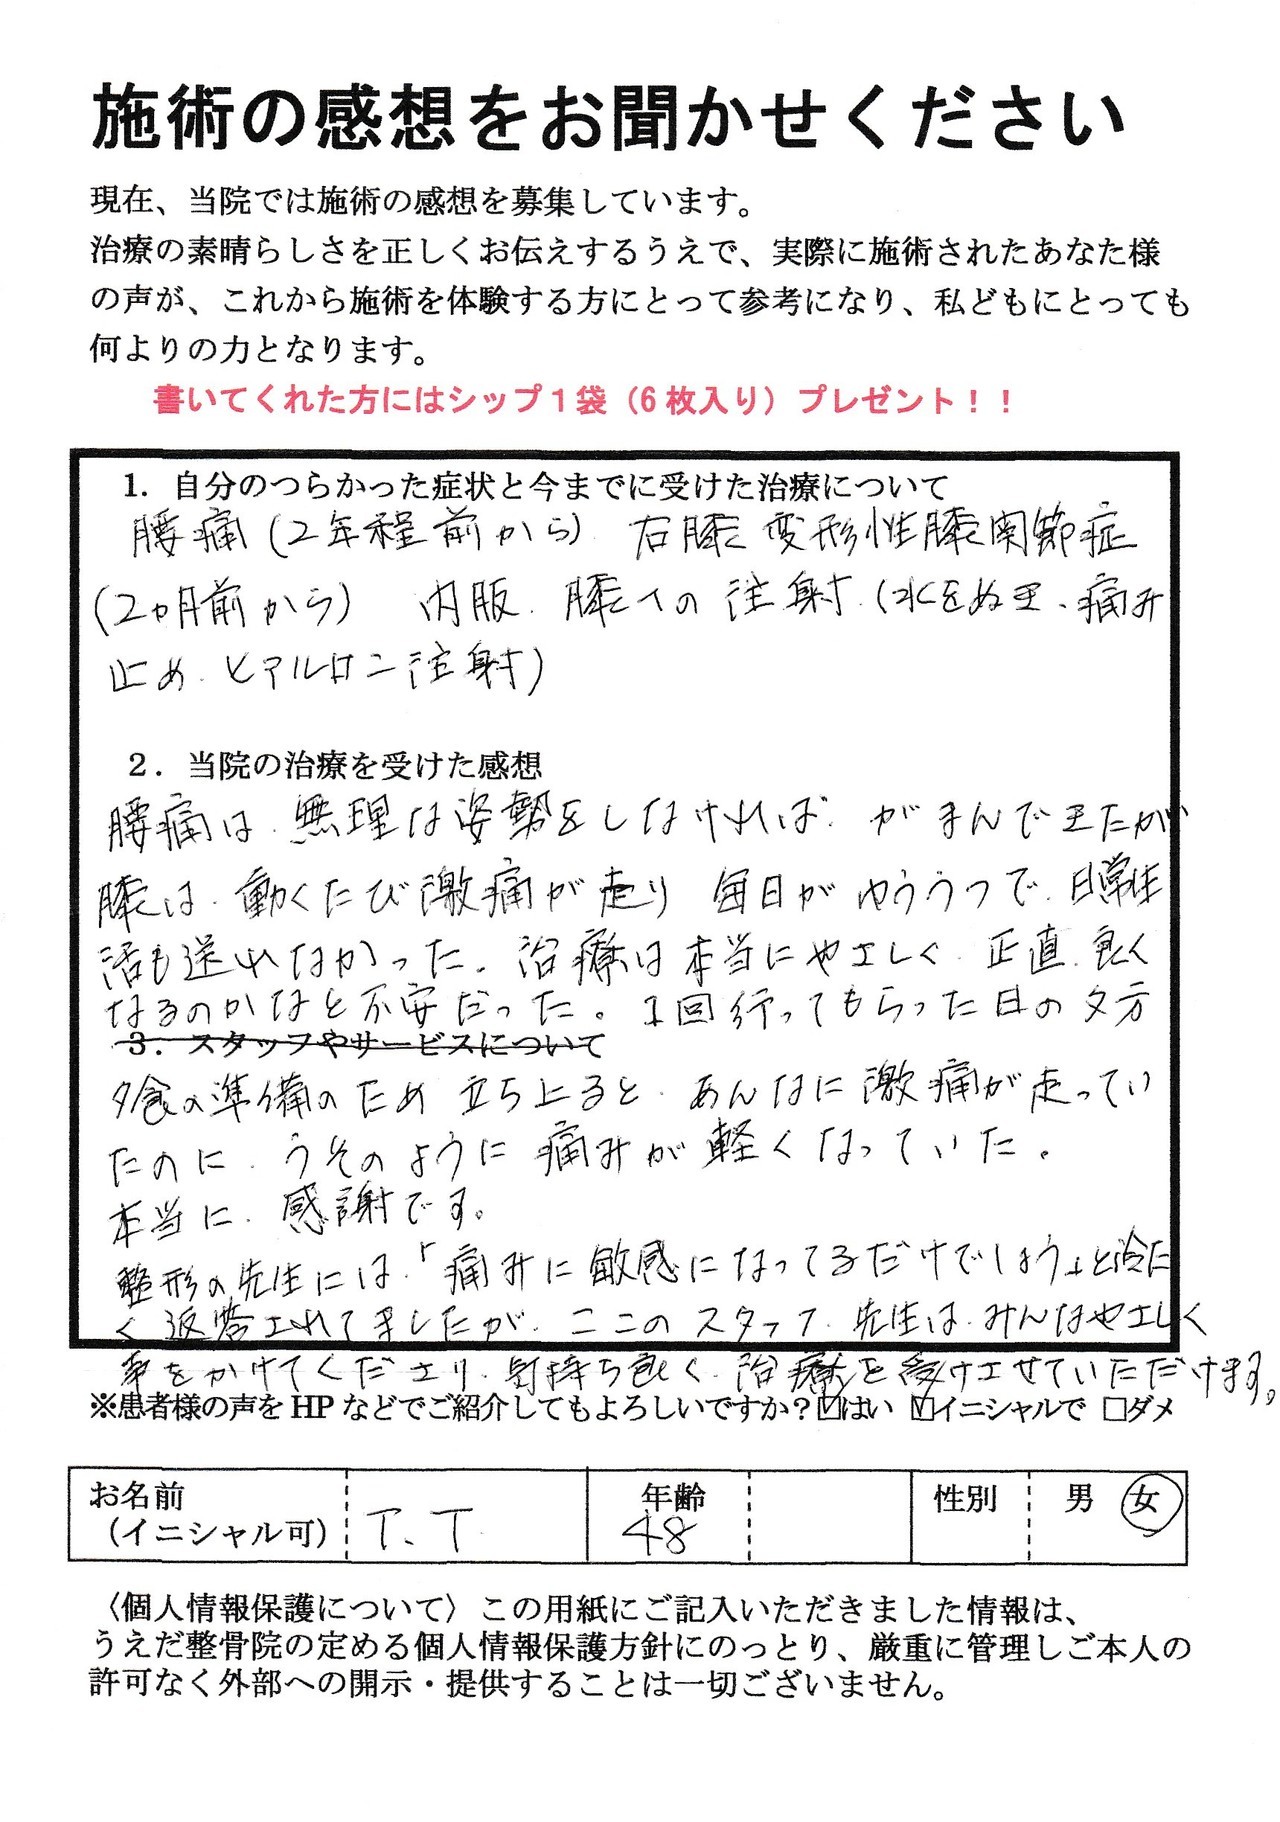 施術の感想をお聞かせください
現在、当院では施術の感想を募集しています。
治療の素晴らしさを正しくお伝えするうえで、実際に施術されたあなた様
の声が、これから施術を体験する方にとって参考になり、私どもにとっても
何よりの力となります。
書いてくれた方にはシップ１袋（6 枚入り）プレゼント！！
1. 自分のつらかった症状と今までに受けた治療について
腰痛(2年程前から) 右膝 変形性膝関節症
(2ヵ月前から) 内服. 膝への注射.(水をぬき、痛み
止め. ヒアルロン注射)
２．当院の治療を受けた感想
腰痛は.無理な姿勢をしなければ. がまんできたが
膝は.動くたび激痛が走り 毎日がゆううつで.日常生
活も送れなかった。治療は本当にやさしく.正直.良く
なるのかなと不安だった。1回行ってもらった日の夕方
３．スタッフやサービスについて
夕食の準備のため 立ち上ると.あんなに激痛が走ってい
たのに.うそのように痛みが軽くなっていた。
本当に.感謝です。
整形の先生には.「痛みに敏感になってるだけでしょう」と冷た
く返答されてましたが.ここのスタッフ.先生は.みんなやさしく
声をかけてくださり.気持ち良く.治療を受けさせていただけます。
※患者様の声を HP などでご紹介してもよろしいですか？☑はい ☑イニシャルで □ダメ
お名前
（イニシャル可） T. T 年齢 48 性別 男 女
〈個人情報保護について〉この用紙にご記入いただきました情報は、
うえだ整骨院の定める個人情報保護方針にのっとり、厳重に管理しご本人の
許可なく外部への開示・提供することは一切ございません。